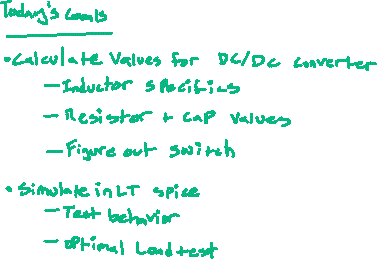 Today's Goals
• Calculate Values for DC/DC converter
— Inductor specifics
— Resistor + cap values
— Figure out switch
• Simulate in LT spice
— Test behavior
— optimal Load test